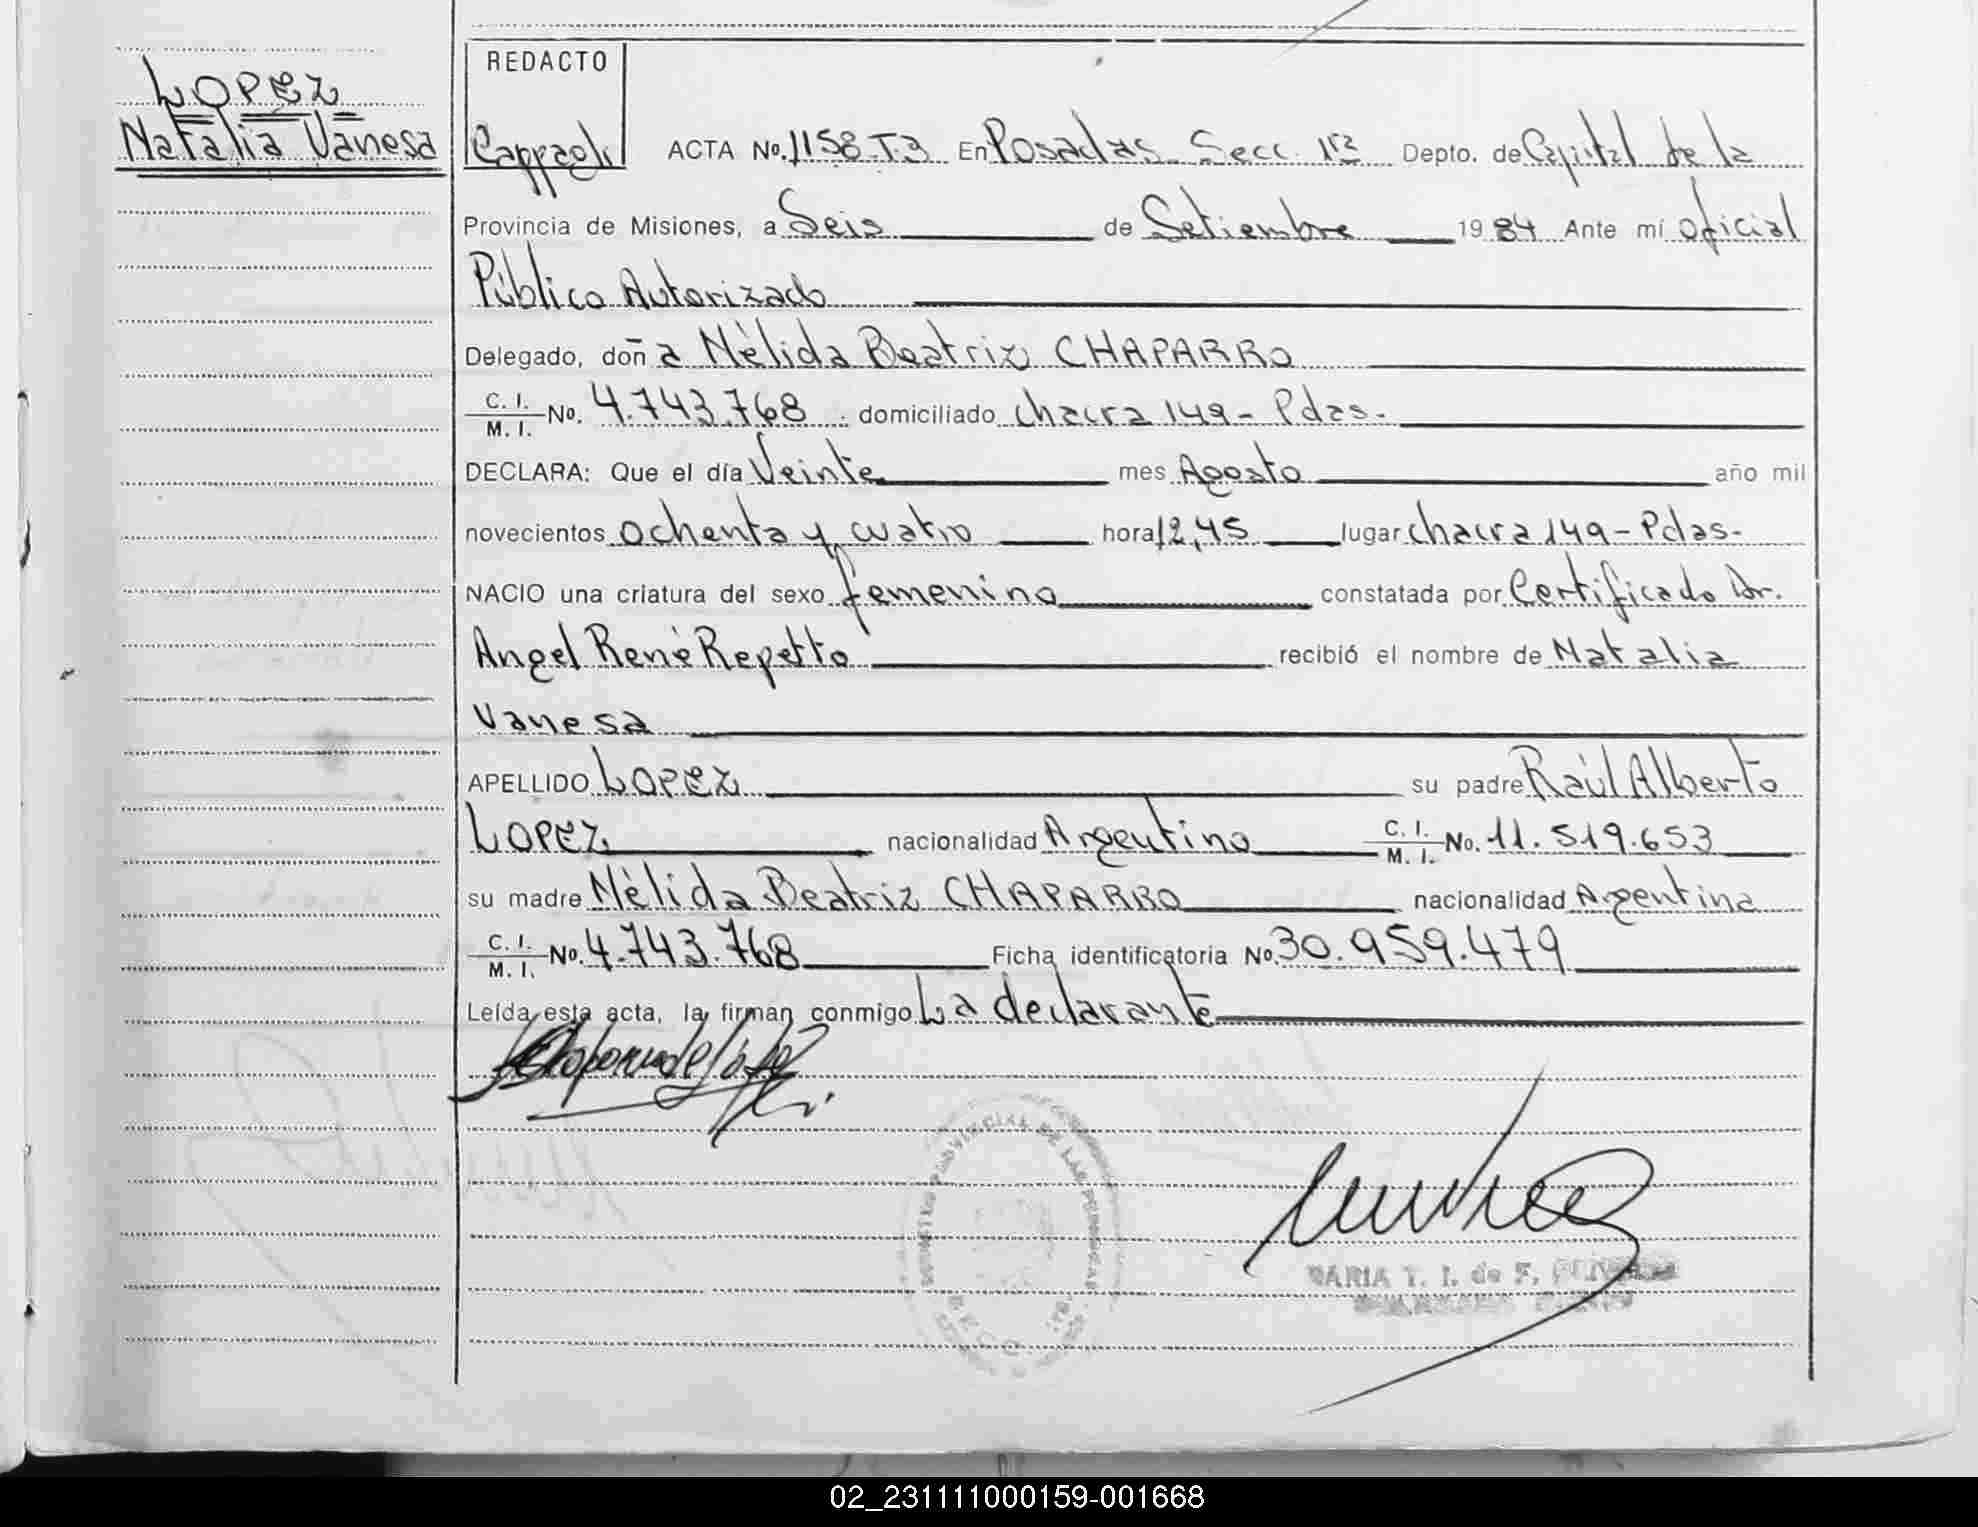 LOPEZ
Natalia Vanesa
REDACTO
ACTA No. 1158.T.3 En Posadas Secc. 1ra Depto. de Capital de la
Provincia de Misiones, a Seis de Setiembre 1984 Ante mí oficial
Público Autorizado
Delegado, doña Nélida Beatriz CHAPARRO
C. I. / M. I. No. 4.743.768 domiciliado chacra 149 - Pdas.
DECLARA: Que el día Veinte mes Agosto año mil
novecientos ochenta y cuatro hora 12,45 lugar chacra 149 - Pdas-
NACIO una criatura del sexo femenino constatada por Certificado Dr.
Angel René Repetto recibió el nombre de Natalia
Vanesa
APELLIDO LOPEZ su padre Raúl Alberto
LOPEZ nacionalidad Argentino C. I. / M. I. No. 11.519.653
su madre Nélida Beatriz CHAPARRO nacionalidad Argentina
C. I. / M. I. No. 4.743.768 Ficha identificatoria No. 30.959.479
Leída esta acta, la firman conmigo La declarante
PROVINCIAL DE LAS PERSONAS
MARIA T. I. de F.
02_231111000159-001668